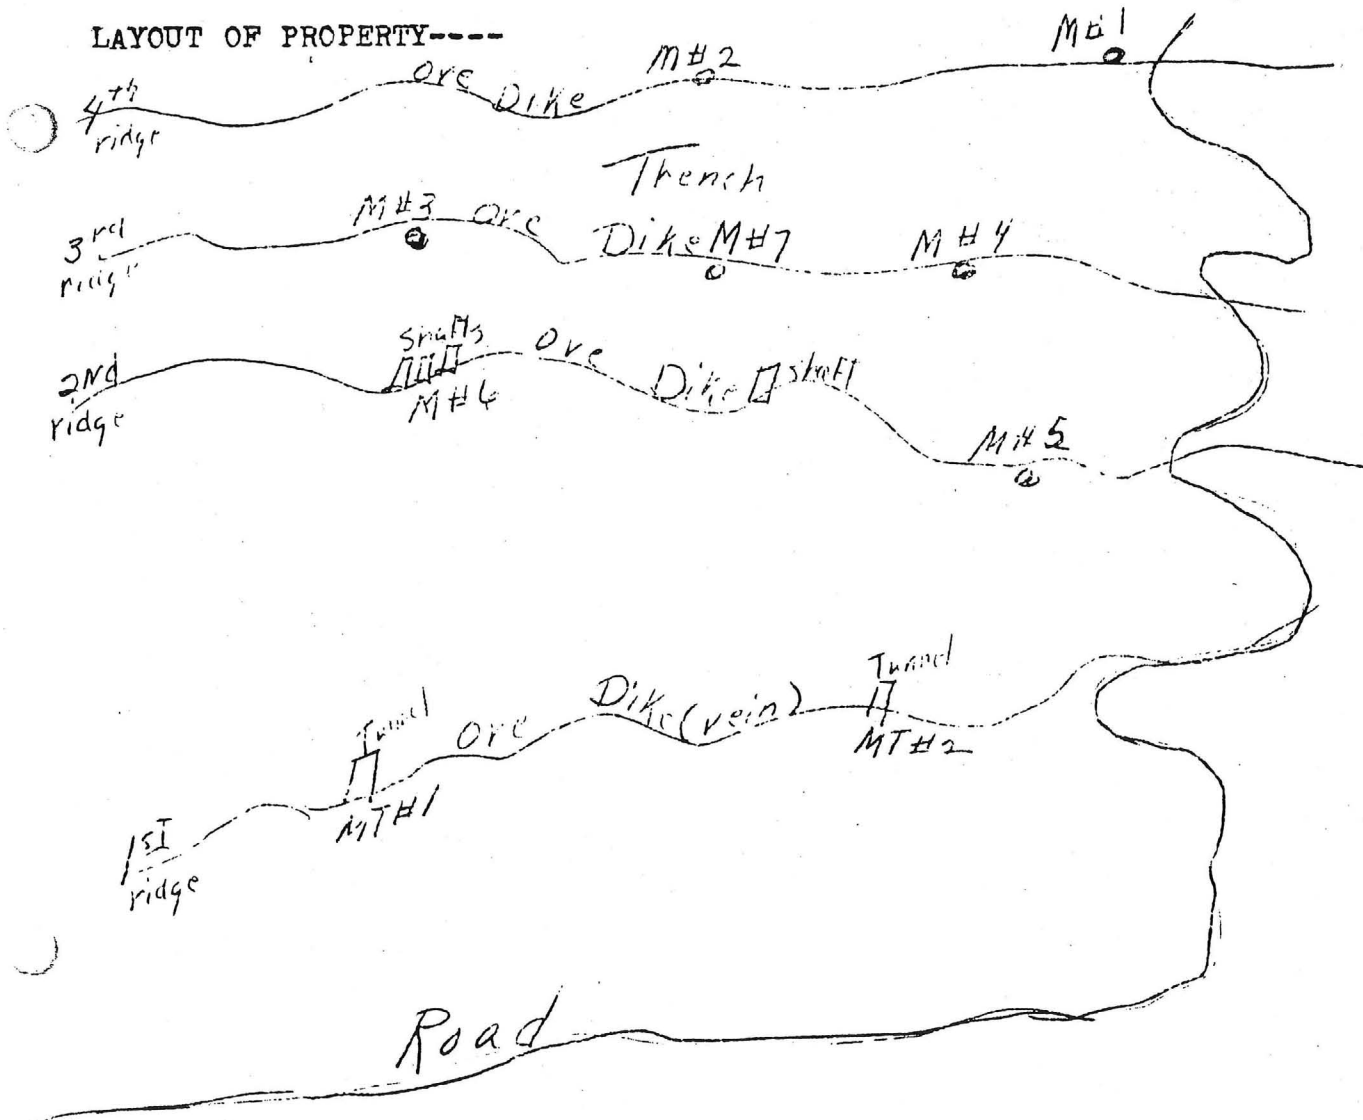 LAYOUT OF PROPERTY----
M#1
M#2
4th ridge
Ore Dike
Trench
3rd ridge
M#3
Ore Dike
M#7
M#4
2Nd ridge
Shafts
M#6
Ore Dike
shaft
M#5
1sT ridge
Tunnel
MT#1
Ore Dike (vein)
Tunnel
MT#2
Road